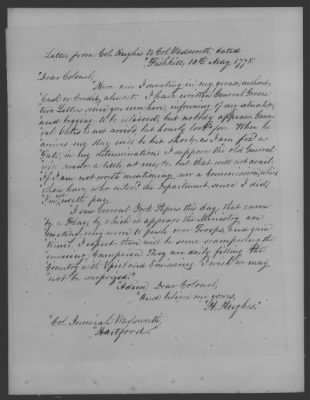 Letter from Col. Hughes to Col. Wadsworth, dated
"Fishkill 10th May 1778.
"Dear Colonel,
"Here am I sweating in my [...], without
"cash or Credit, almost. I have written General Greene
"two Letters since you were here, informing of my situation,
"and begging to be relieved, but nobody appears. Gene-
"ral Gates is not arrived, but hourly look'd for. When he
"arrives my stay will be but short, as I am fix'd as
"Fate, in my determinations. I suppose the old General
"will swear a little at me, &c. but that will not avail.
"If I am not worth mentioning, nor a Commission, which
"others have, who enter'd the Department since I did,
"I'm not worth pay.
"I saw General York Papers this day, that came
"by a Flag, by which it appears the Ministry are
"exerting every nerve to push over Troops, and gain
"time. I expect there will be some scampering the
"ensuing Campaign. They are daily filling the
"Country with Spies and Emissaries. I wish we may
"not be surprized."
"Adieu Dear Colonel,
"and believe me yours,
"H. Hughes."
"Col. Jeremiah Wadsworth,
"Hartford."